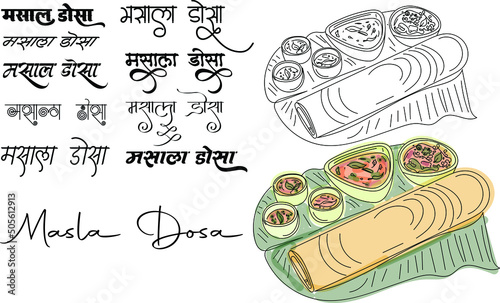 मसाला डोसा
मसाला डोसा
मसाल डोसा
मसाला डोसा
मसाला डोसा
मसाला डोसा
मसाला डोसा
मसाला डोसा
मसाला डोसा
Masla Dosa
Adobe Stock | #505612913